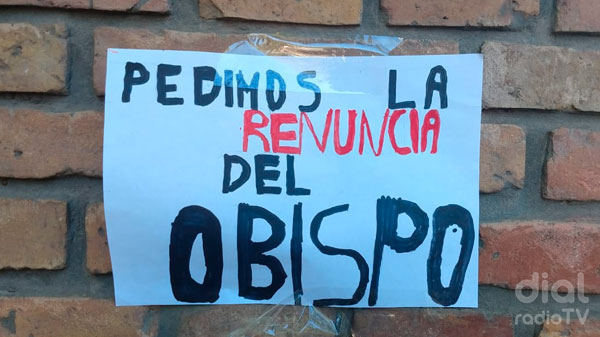 PEDIMOS LA
RENUNCIA
DEL
OBISPO
dial
radioTV